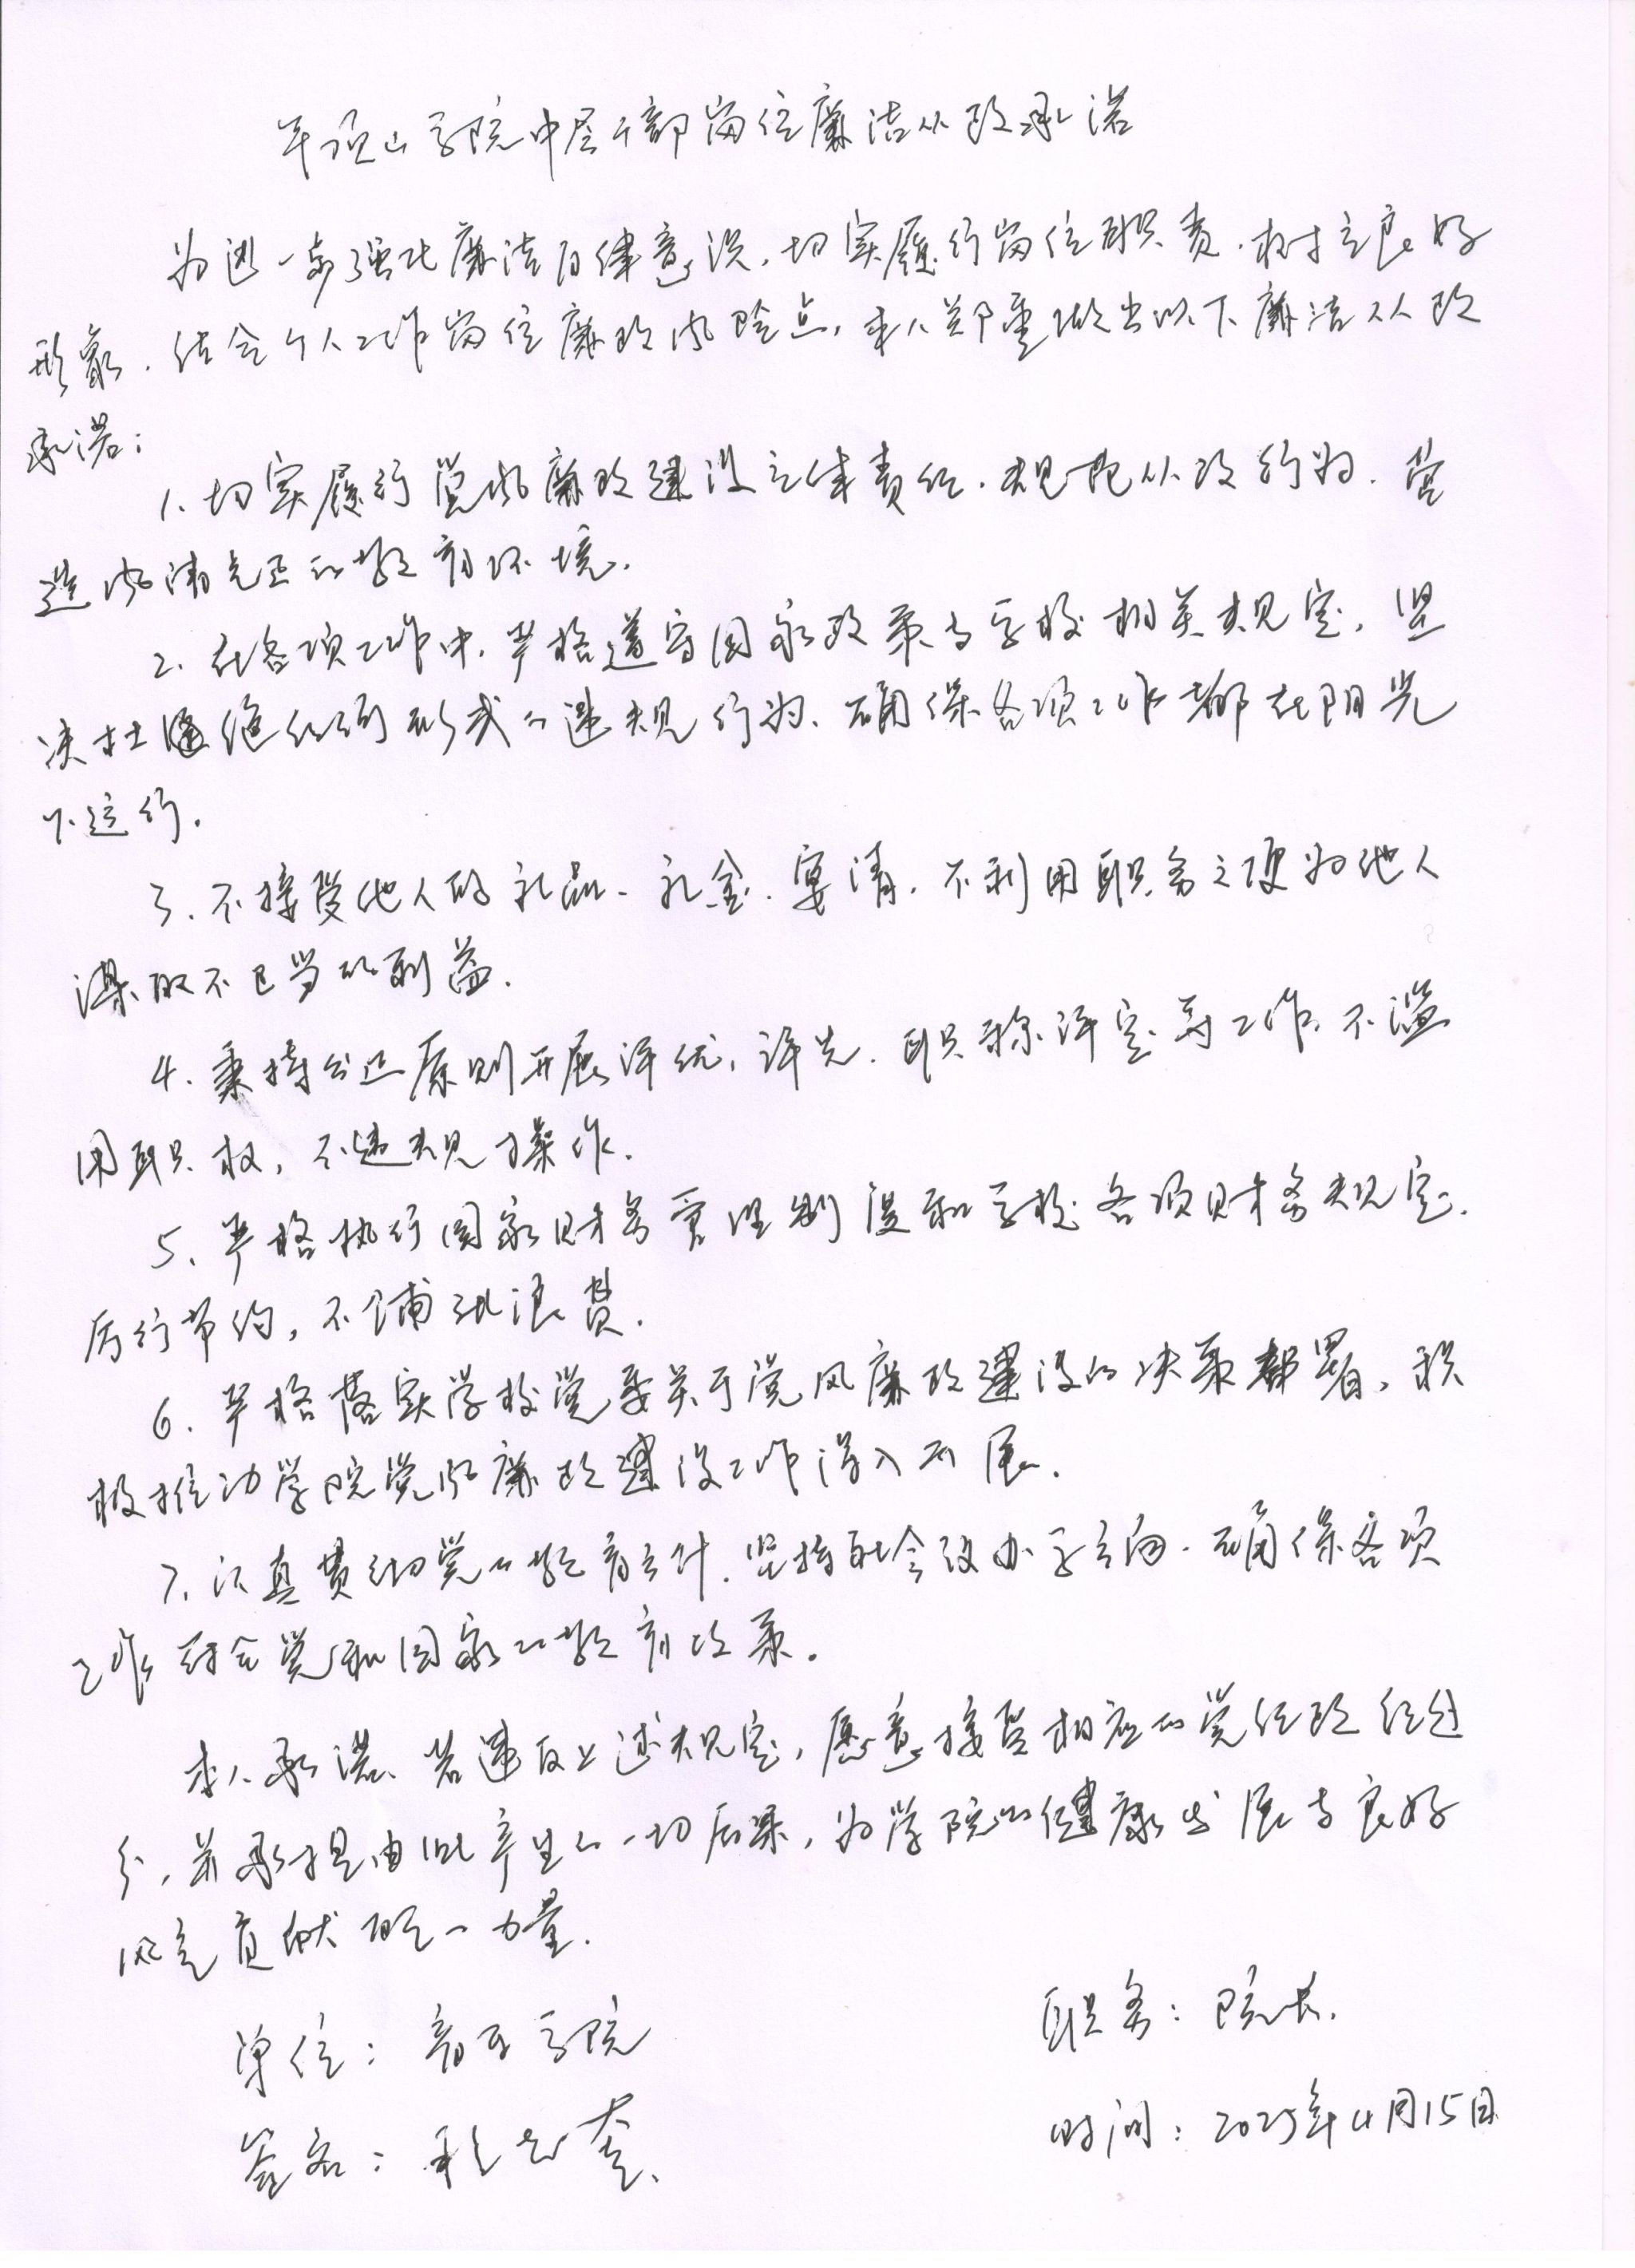 平顶山学院中层干部岗位廉洁从政承诺
为进一步强化廉洁自律意识，切实履行岗位职责，树立良好
形象，结合个人工作岗位廉政风险点，本人郑重做出以下廉洁从政
承诺：
1、切实履行党风廉政建设主体责任，规范从政行为，营
造风清气正的教育环境。
2、在各项工作中，严格遵守国家政策与学校相关规定，坚
决杜绝任何形式的违规行为，确保各项工作都在阳光
下运行。
3、不接受他人的礼品、礼金、宴请，不利用职务之便为他人
谋取不正当的利益。
4、秉持公正原则开展评优、评先、职称评定等工作，不滥
用职权，不违规操作。
5、严格执行国家财务管理制度和学校各项财务规定，
厉行节约，不铺张浪费。
6、严格落实学校党委关于党风廉政建设的决策部署，积
极推动学院党风廉政建设工作深入开展。
7、认真贯彻党的教育方针，坚持社会主义办学方向，确保各项
工作符合党和国家的教育政策。
本人承诺，若违反上述规定，愿意接受相应的党纪政纪处
分，并承担由此产生的一切后果，为学院的健康发展与良好
风气贡献一力量。
单位：音乐学院
职务：院长
签名：
时间：2025年4月15日